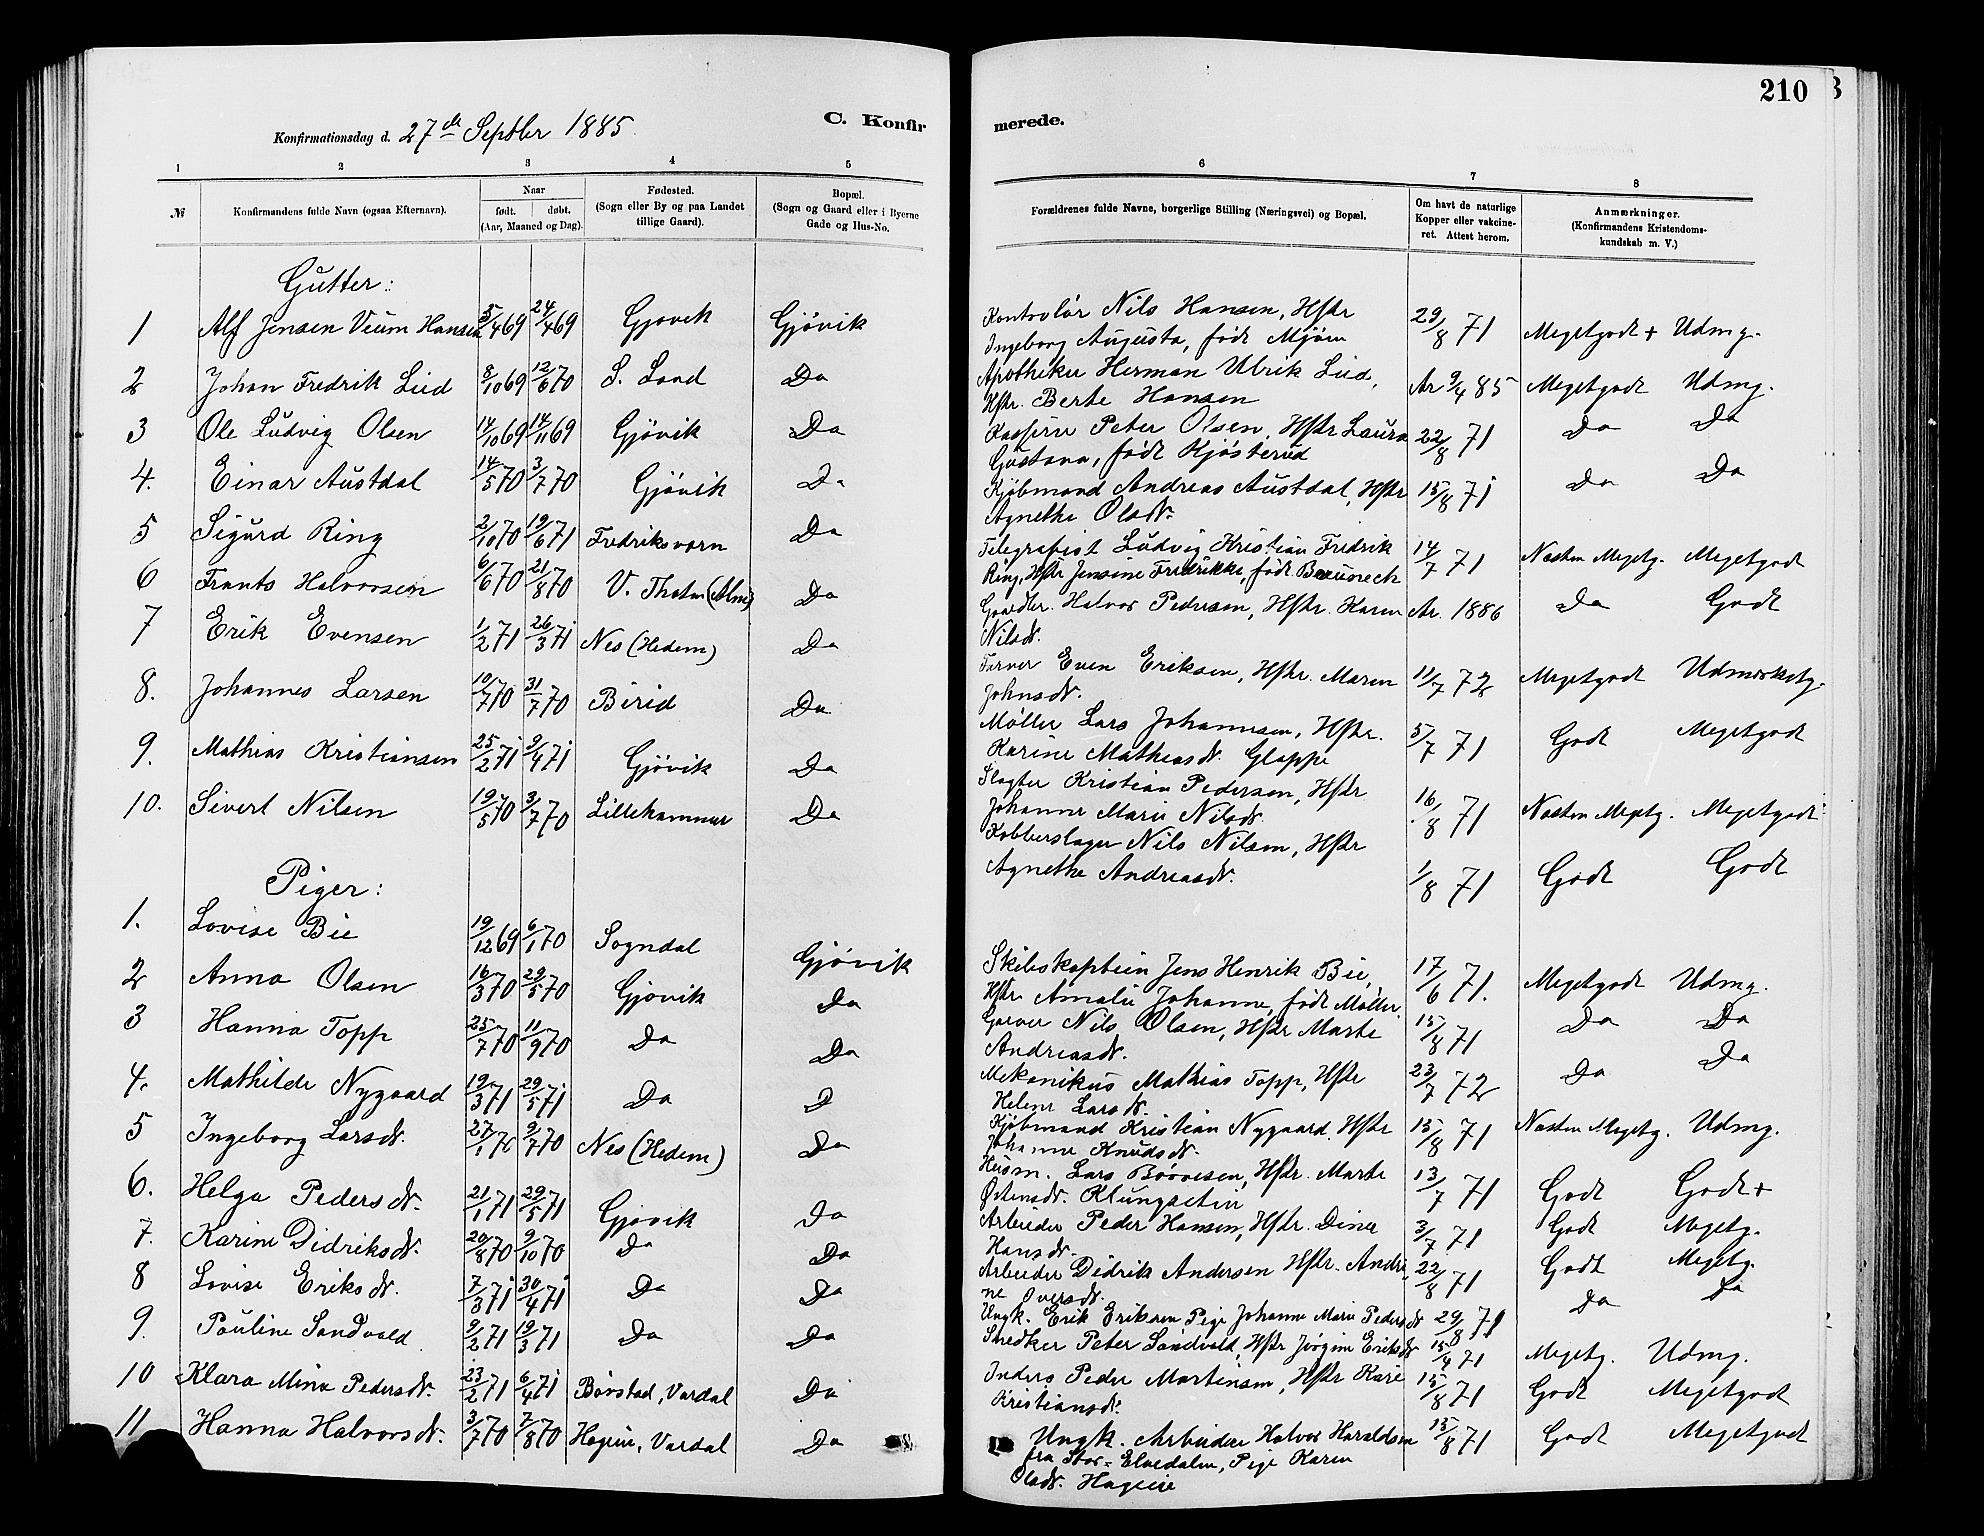 210
Konfirmationsdag d. 27de Septbr 1885.
C. Konfir
merede.
1 2 3 4 5
6 7 8
№
Konfirmandens fulde Navn (ogsaa Efternavn).
Naar
født. døbt.
(Aar, Maaned og Dag).
Fødested.
(Sogn eller By og paa Landet
tillige Gaard).
Bopæl.
(Sogn og Gaard eller i Byerne
Gade og Hus-No.
Forældrenes fulde Navne, borgerlige Stilling (Næringsvei) og Bopæl.
Om havt de naturlige
Kopper eller vakcine-
ret. Attest herom.
Anmærkninger.
(Konfirmandens Kristendoms-
kundskab m. V.)
Gutter:
1 Alf Jensen Veum Hansen 5/4 69 24/4 69 Gjøvik Gjøvik
2 Johan Fredrik Lüd 8/10 69 12/6 70 S. Land Do
3 Ole Ludvig Olsen 14/10 69 14/11 69 Gjøvik Do
4. Einar Austdal 14/5 70 3/7 70 Gjøvik Do
5 Sigurd Ring 2/10 70 19/6 71 Fredriksværn Do
6 Frants Halvorsen 6/6 70 21/8 70 V. Thoten (Alm) Do
7 Erik Evensen 1/2 71 26/3 71 Nes (Hedem) Do
8. Johannes Larsen 10/7 70 31/7 70 Birid Do
9. Mathias Kristiansen 25/2 71 9/4 71 Gjøvik Do
10. Sivert Nilsen 19/5 70 3/7 70 Lillehammer Do
Piger:
1. Lovise Bie 19/12 69 6/1 70 Sogndal Gjøvik
2 Anna Olsen 16/3 70 29/5 70 Gjøvik Do
3 Hanna Topp 25/7 70 11/9 70 Do Do
4. Mathilde Nygaard 19/3 71 29/5 71 Do D
5 Ingeborg Larsdr. 27/1 70 9/7 70 Nes (Hedem) Do
6. Helga Pedersdr. 21/1 71 29/5 71 Gjøvik Do
7. Karine Didriksdr. 20/8 70 9/10 70 Do Do
8 Lovise Eriksdr. 7/3 71 30/4 71 Do Do
9. Pauline Sandvold 9/2 71 19/3 71 Do Do
10 Klara Mina Pedersdr. 23/2 71 6/4 71 Børstad, Vardal Do
11 Hanna Halvorsdr. 3/7 70 7/8 70 Hageie, Vardal Do
Kontrolør Nils Hansen, Hstr
Ingeborg Augusta, født Mjøen 29/8 71 Megetgodt + Udmg.
Apotheker Herman Ulrik Lüd,
Hstr. Berte Hansen Ar 9/4 85 Megetgodt Udmg.
Kasserer Peter Olsen, Hstr Laura
Gustava, født Kjøsterud 22/8 71 Do Do
Kjøbmand Andreas Austdal, Hstr
Agnethe Olsdr. 15/8 71 Do Do
Telegrafist Ludvig Kristian Fredrik
Ring, Hstr Jensine Fredrikke, født 14/7 71 Næsten Megetg. Megetgodt
Gaardbr. Halvor Pedersen, Hstr. Karen
Nilsdr. Ar. 1886 Do Godt
Farver Even Eriksen, Hstr. Maren
Johnsdr. 11/7 72 Megetgodt Udmærketg.
Møller Lars Johannesen, Hstr.
Karine Mathiasdr. Glæppe 5/7 71 Godt Megetgodt
Slagter Kristian Pedersen, Hstr
Johanne Marie Nilsdr. 16/8 71 Næsten Megetg. Megetgodt
Kobberslager Nils Nilsen, Hstr
Agnethe Andreasdr. 1/8 71 Godt Godt
Skibskaptein Jens Henrik Bie,
Hstr. Amalie Johanne, født Møller 17/6 71. Megetgodt Udmg.
Garver Nils Olsen, Hstr Marte
Andreasdr. 15/8 71 Do Do
Mekanikus Mathias Topp, Hstr
Helene Larsdr. 23/7 72 Do Do
Kjøbmand Kristian Nygaard. Hstr
Johanne Knudsdr. 15/8 71 Næsten Megetg. Udmg.
Husm. Lars Børresen, Hstr. Marte
Østensdr. Klungseteie 13/7 71 Godt Godt+
Arbeider Peder Hansen, Hstr. Dina
Hansdr. 3/7 71 Godt Megetg.
Arbeider Didrik Andersen Hstr. Andri
ne Iversdr. 22/8 71 Godt Megetg.
Ungk. Erik Eriksen Pige Johanne Marie Pedersdr 29/8 71 Do Do
Snedker Peter Sandvold, Hstr Jørgine Eriksdr 15/4 71 Megetg. Udmg.
Inders Peder Martinsen, Hstr Kari
Kristiansdr. 15/8 71 Godt Megetgodt
Ungk. Arbeider Halvor Haraldsen
fra Stor-Elvedalen, Pige Karen
Olsdr. Hageie 15/8 71 Godt Megetgodt